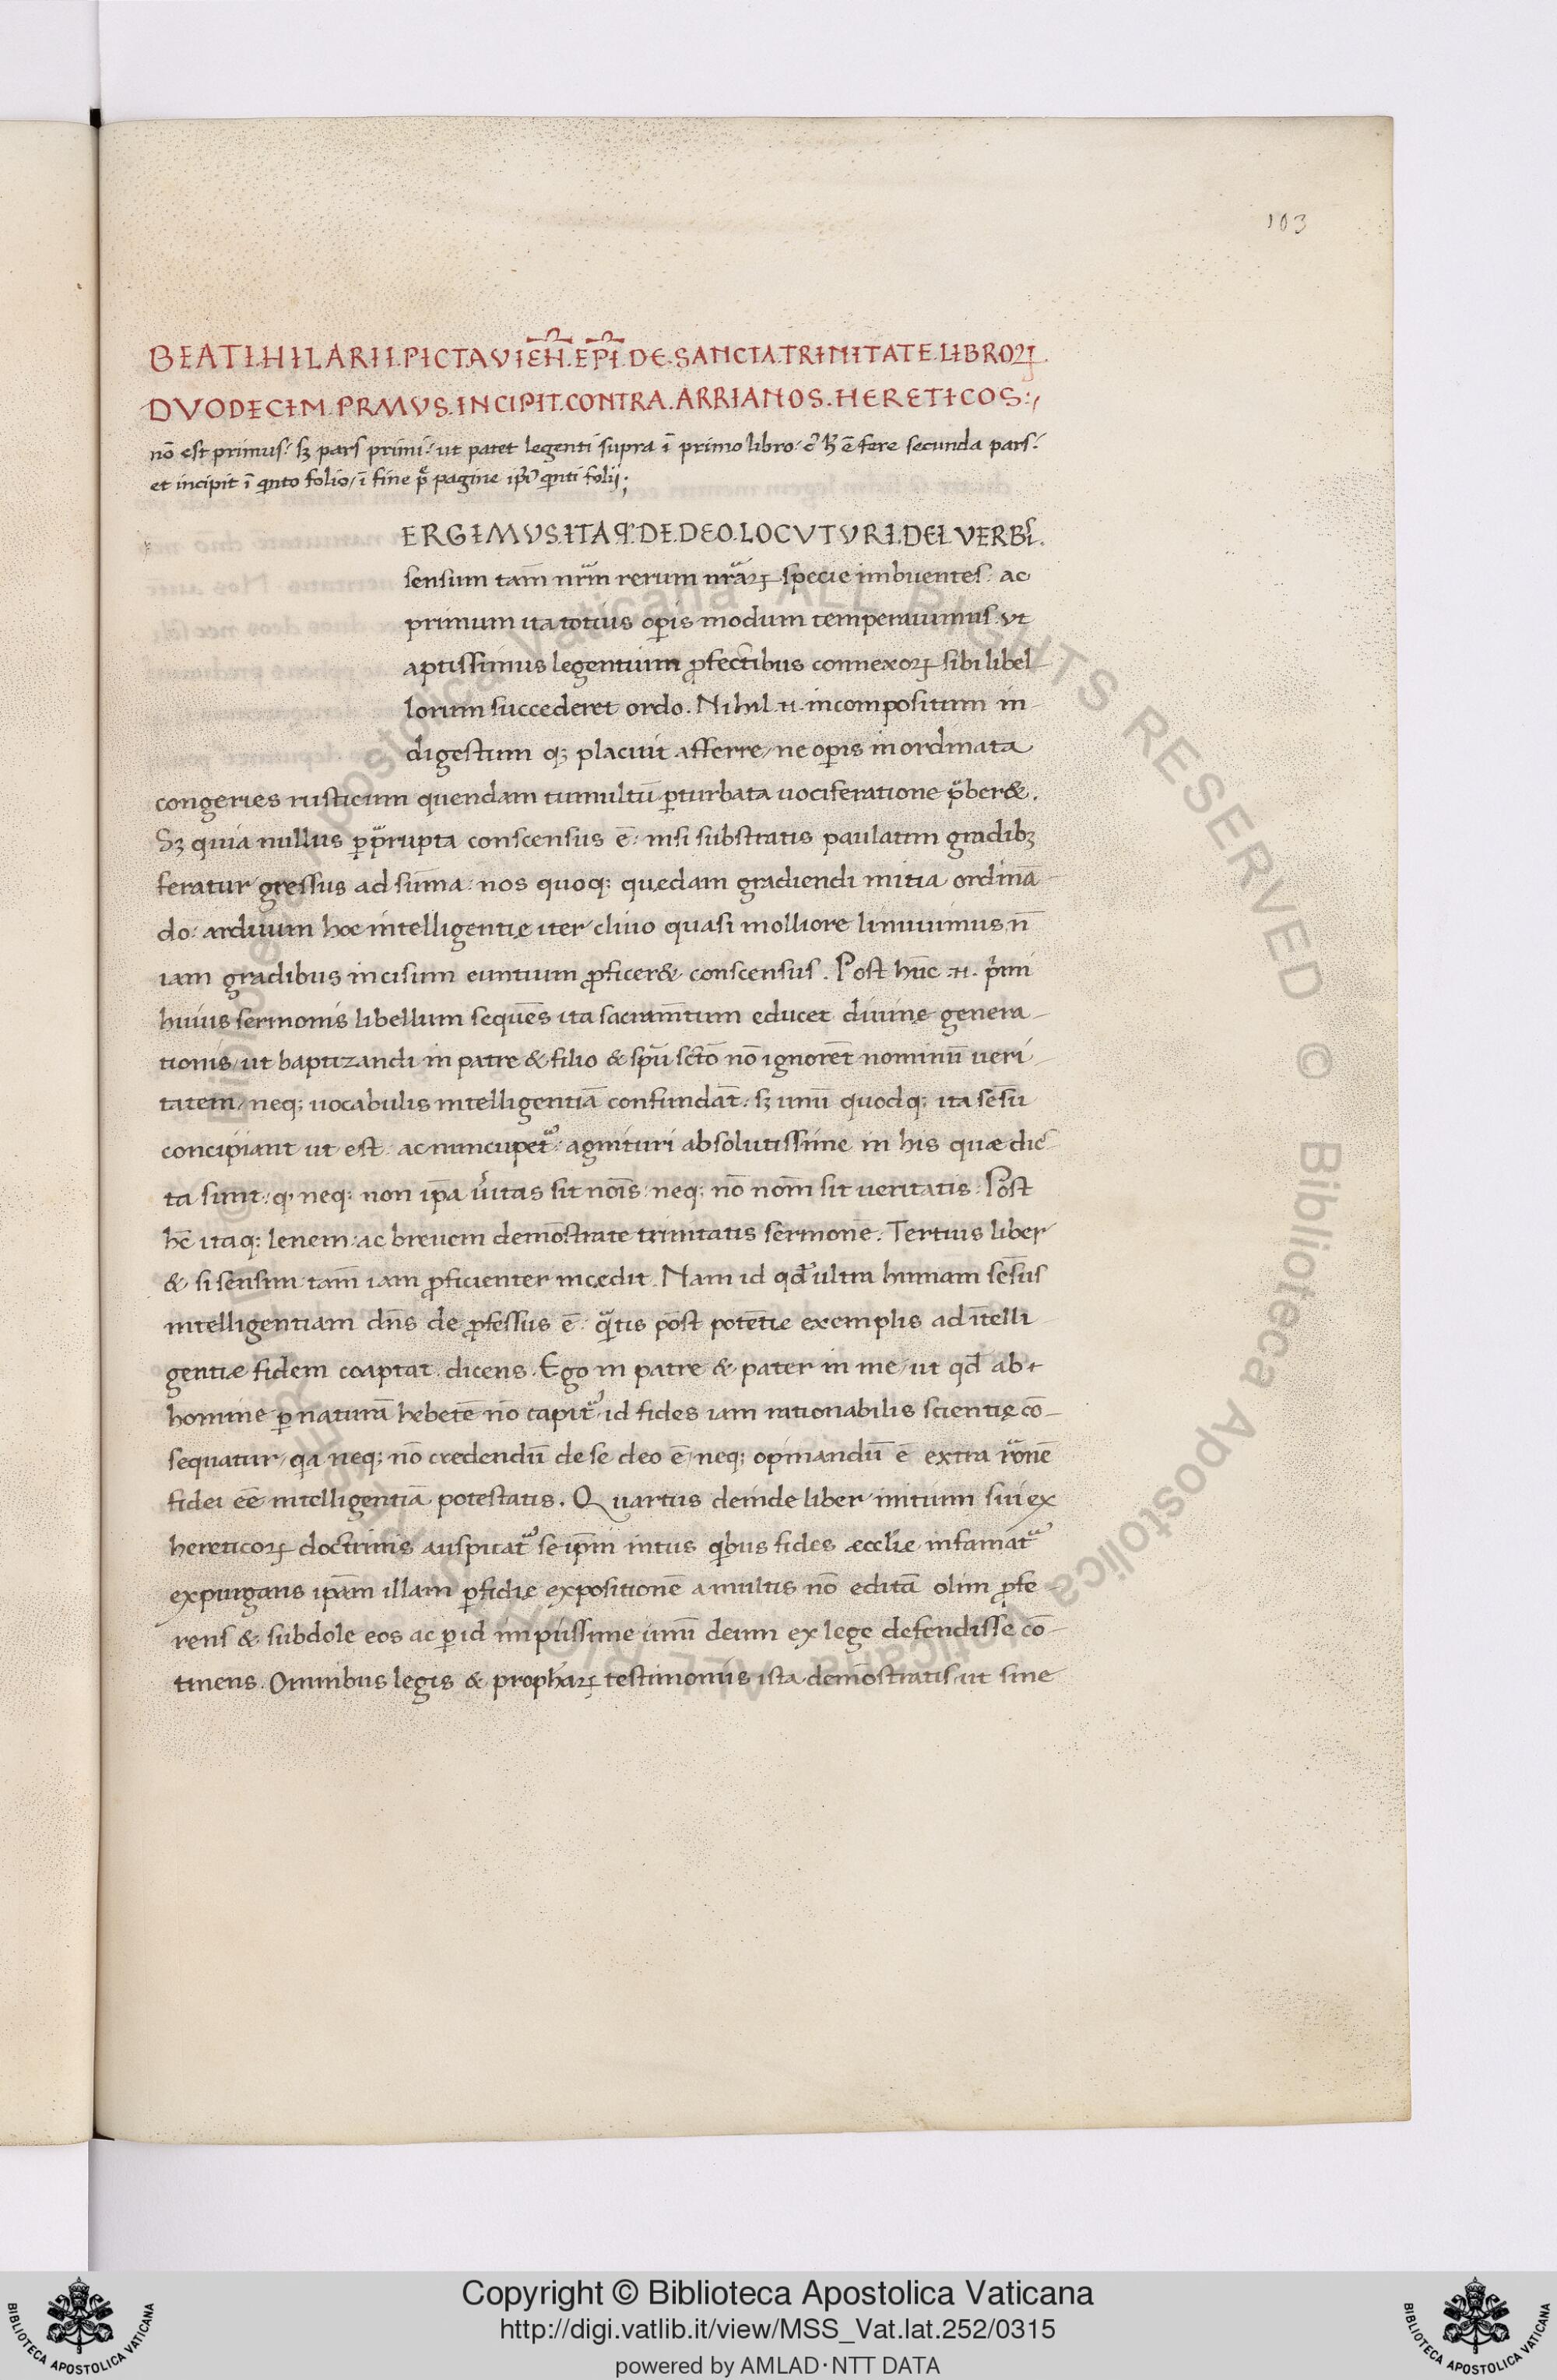 103
BEATI.HILARII.PICTAVIEN̄.EPĪ.DE.SANCTA.TRINITATE.LIBROꝜ.
DVODECIM.PRMVS.INCIPIT.CONTRA.ARRIANOS.HERETICOS:,
nō est primus: sꝫ pars primi: ut patet legenti supra ī primo libro: ē fere secunda pars:
et incipit ī qͥnto folio/ ī fine pᵉ pagine ip̄i qͥnti folij;
ERGIMVS.ITAQ.DE.DEO.LOCVTVRI.DEI.VERBIS.
sensum tam̄ nrᵃm rerum nrᵃꝝ specie imbuentes: ac
primum ita totius oꝑis modum temperauimus. ut
aptissimus legentium ꝓfectibus connexoꝝ sibi libel-
lorum succederet ordo. Nihil .n. incompositum in-
digestum qꝫ placuit afferre/ ne oꝑis inordinata
congeries rusticum quendam tumultū ꝑturbata uociferatione pᵃber&.
Sꝫ quia nullus ꝑ pᵃrupta conscensus ē: nisi substratis paulatim gradibꝫ
feratur gressus ad sūma: nos quoqꝫ quedam gradiendi initia ordinā-
do: arduum hoc intelligentię iter/ cliuo quasi molliore liniuimus, n̄
iam gradibus incisum euntium ꝓficer& conscensus. Post hūc .n. pͥmi
huius sermonis libellum sequēs ita sacramētum educet diuinę genera-
tionis/ ut baptizandi in patre & filio & spū sctō nō ignorēt nominū ueri-
tatem/ neqꝫ uocabulis intelligentiā confundāt: sꝫ unū quodqꝫ ita sēsū
concipiant ut est: ac nuncupetᷣ: agnituri absolutissime in his quæ dic-
ta sunt: qꝫ neqꝫ non ip̄a uͥitas sit noīs: neqꝫ nō nom̄ sit ueritatis. Post
hē itaqꝫ lenem: ac breuem demōstrate trinitatis sermone. Tertius liber
& si sensim tam̄ iam ꝓficienter incedit. Nam id qd̄ ultra humani sēsus
intelligentiam dn̄s de ꝓfessus ē: qᵃtis pōst potētie exemplis ad ītelli-
gentiæ fidem coaptat. dicens. Ego in patre & pater in me/ ut qd̄ ab
homine ꝑ naturā hebetē nō capitᷣ id fides iam rationabilis scientię cō-
sequatur/ qᵃ neqꝫ nō credendū de se deo ē/ neqꝫ opinandū ē extra rᵒnē
fidei eē intelligentiā potestatis. Quartus deinde liber initium sui ex
hereticoꝝ doctrinis auspicatᷣ se ip̄m intus qͥbus fides æccl̄ie infamatᷣ
expurgans ip̄am illam ꝑfidię expositionē a multis nō editā olim ꝓfe-
rens & subdole eos ac ꝑ id impiissime unū deum ex lege defendisse cō-
tinens. Omnibus legis & prophāꝝ testimoniis ista demōstratis/ ut sine
Copyright © Biblioteca Apostolica Vaticana
http://digi.vatlib.it/view/MSS_Vat.lat.252/0315
powered by AMLAD·NTT DATA